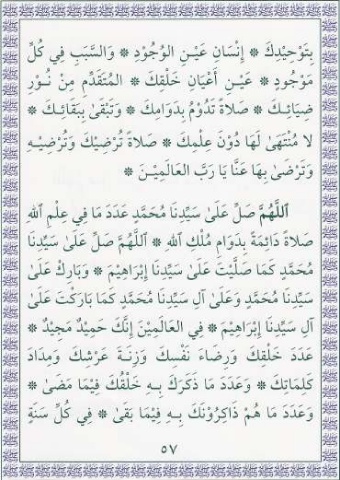 بِتَوْحِيْدِكَ * إِنْسَانِ عَيْـنِ الوُجُوْدِ * وَالسَّبَبِ فِي كُلِّ
مَوْجُودٍ * عَيْـنِ أَعْيَانِ خَلْقِكَ * المُتَقَدِّمِ مِنْ نُـورِ
ضِيَائِـكَ * صَلاَةً تَدُوْمُ بِدَوَامِكَ * وَتَبْقَىٰ بِبَقَائِـكَ *
لا مُنْتَهَىٰ لَهَا دُوْنَ عِلْمِكَ * صَلاَةً تُرْضِيْكَ وَتُرْضِيْـهِ
وَتَرْضَىٰ بِهَا عَنَّا يَا رَبَّ العَالَمِيْـنَ *
اَللَّهُمَّ صَلِّ عَلَىٰ سَيِّدِنَا مُحَمَّدٍ عَدَدَ مَا فِي عِلْمِ اللهِ
صَلاَةً دَائِمَةً بِدَوَامِ مُلْكِ اللهِ * اَللَّهُمَّ صَلِّ عَلَىٰ سَيِّدِنَا
مُحَمَّدٍ كَمَا صَلَّيْتَ عَلَىٰ سَيِّدِنَا إِبْرَاهِيْمَ * وَبَارِكْ عَلَىٰ
سَيِّدِنَا مُحَمَّدٍ وَعَلَىٰ آلِ سَيِّدِنَا مُحَمَّدٍ كَمَا بَارَكْتَ عَلَىٰ
آلِ سَيِّدِنَا إِبْرَاهِيْمَ * فِي العَالَمِيْنَ إِنَّكَ حَمِيْدٌ مَجِيْدٌ *
عَدَدَ خَلْقِكَ وَرِضَاءَ نَفْسِكَ وَزِنَـةَ عَرْشِـكَ وَمِدَادَ
كَلِمَاتِكَ * وَعَدَدَ مَا ذَكَرَكَ بِـهِ خَلْقُكَ فِيْمَا مَضَىٰ *
وَعَدَدَ مَا هُمْ ذَاكِرُوْنَكَ بِـهِ فِيْمَا بَقِىَ * فِي كُلِّ سَنَةٍ
٥٧